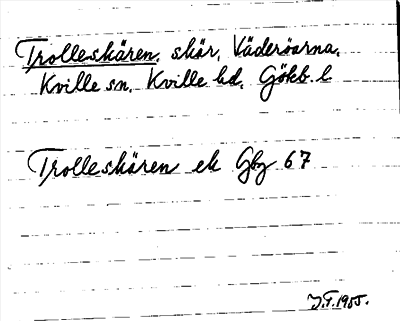 Trolleskären, skär, Väderöarna,
Kville sn, Kville hd, Göteb. l
Trolleskären ek Gbg 67
J.T. 1955.